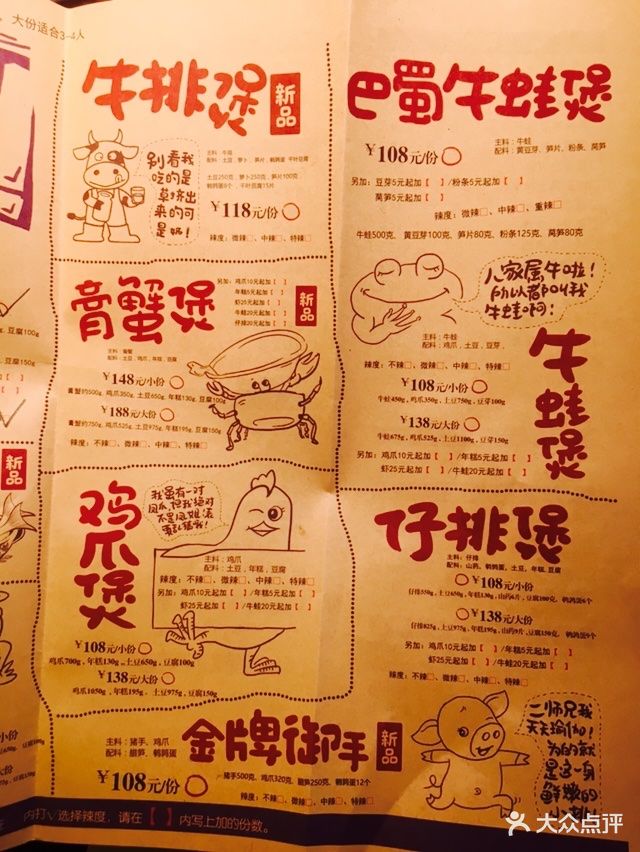 大份适合3-4人
牛排煲
新品
别看我
吃的是
草挤出
来的可
是奶！
主料：牛排
配料：土豆、萝卜、笋片、鹌鹑蛋、千叶豆腐
土豆250克 萝卜250克、笋片100克
鹌鹑蛋6个、千叶豆腐15片
￥118元/份
辣度：微辣□、中辣□、特辣□
膏蟹煲
新品
另加：鸡爪10元起加【 】
年糕5元起加【 】
虾25元起加【 】
牛蛙20元起加【 】
仔排20元起加【 】
主料：膏蟹
配料：土豆、鸡爪、年糕、豆腐
￥148元/小份
膏蟹约500g、鸡爪350g、土豆650g、年糕130g、豆腐100g
￥188元/大份
膏蟹约750g、鸡爪525g、土豆975g、年糕195g、豆腐150g
辣度：不辣□、微辣□、中辣□、特辣□
鸡爪煲
我虽有一对
凤爪,但我绝对
不是凤姐,请
主料：鸡爪
配料：土豆，年糕，豆腐
辣度：不辣□、微辣□、中辣□、特辣□
另加：鸡爪10元起加【 】/年糕5元起加【 】
虾25元起加【 】/牛蛙20元起加【 】
￥108元/小份
鸡爪700g，年糕130g，土豆650g，豆腐100g
￥138元/大份
鸡爪1050g，年糕195g，土豆975g，豆腐150g
金牌御手
新品
主料：猪手、鸡爪
配料：脆笋、鹌鹑蛋
￥108元/份
猪手500克，鸡爪320克，脆笋250克，鹌鹑蛋12个
辣度：不辣□、微辣□、中辣□、特辣□
巴蜀牛蛙煲
￥108元/份
主料：牛蛙
配料：黄豆芽、笋片、粉条、莴笋
另加：豆芽5元起加【 】/粉条5元起加【 】
莴笋5元起加【 】
辣度：微辣□、中辣□、重辣□
牛蛙500克、黄豆芽100克、笋片80克、粉条125克、莴笋80克
人家属牛啦！
所以都叫我
牛蛙啊！
牛蛙煲
主料：牛蛙
配料：鸡爪，土豆，豆芽
辣度：不辣□、微辣□、中辣□、特辣□
￥108元/小份
牛蛙450g，鸡爪350g，土豆750g，豆芽100g
￥138元/大份
牛蛙675g，鸡爪525g，土豆1100g，豆芽150g
另加：鸡爪10元起加【 】/年糕5元起加【 】
虾25元起加【 】/牛蛙20元起加【 】
仔排煲
主料：仔排
配料：山药、鹌鹑蛋，土豆，年糕，豆腐
￥108元/小份
仔排550g，土豆650g，年糕130g，山药6片，豆腐100克，鹌鹑蛋6个
￥138元/大份
仔排825g，土豆975g，年糕195g，山药9片，豆腐150克，鹌鹑蛋9个
另加：鸡爪10元起加【 】/年糕5元起加【 】
虾25元起加【 】/牛蛙20元起加【 】
辣度：不辣□、微辣□、中辣□、特辣□
二师兄我
天天瑜伽！
为的就
是这一身
鲜嫩的
新品
豆腐100g
豆腐150g
内打√选择辣度，请在【 】内写上加的份数。
大众点评